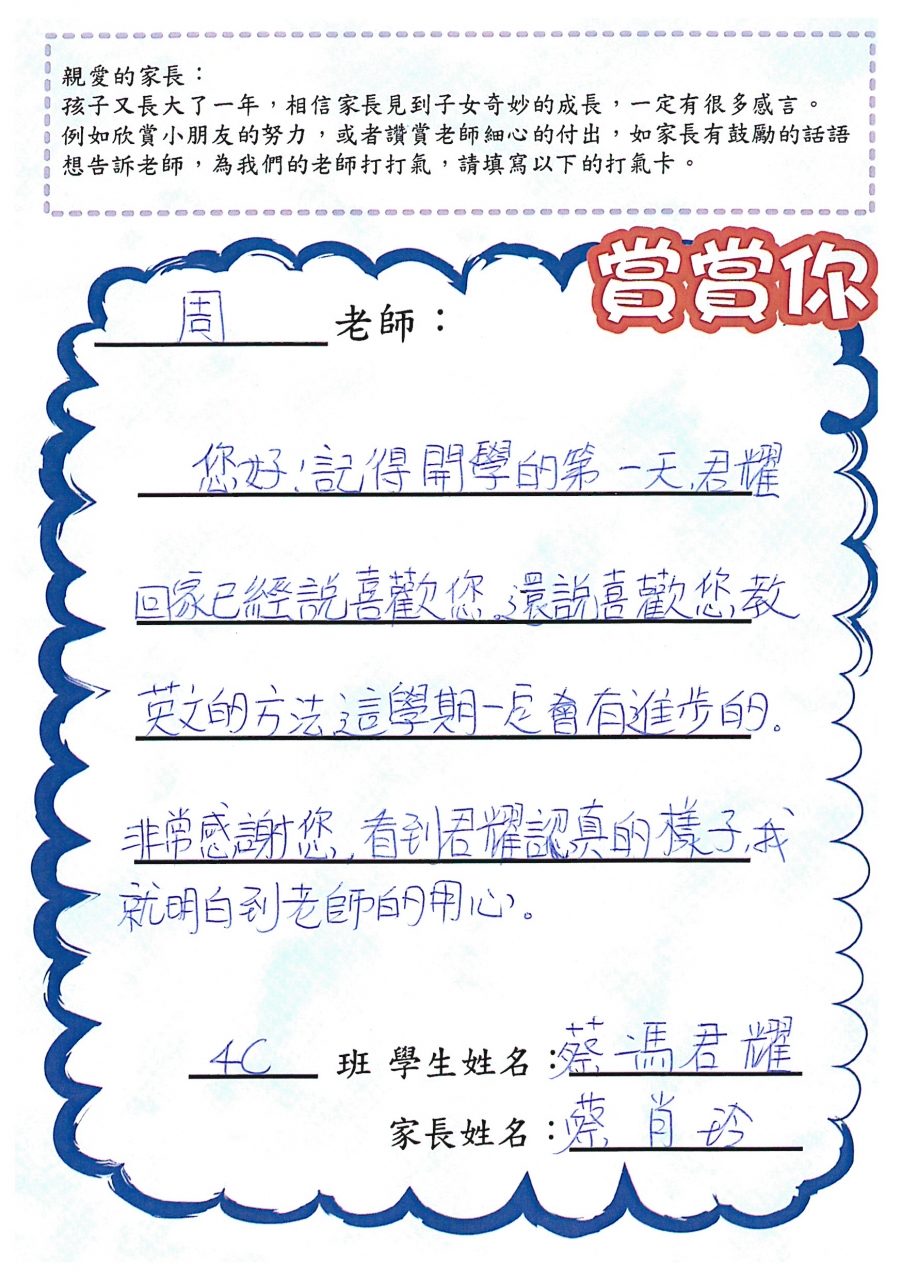 親愛的家長：
孩子又長大了一年，相信家長見到子女奇妙的成長，一定有很多感言。
例如欣賞小朋友的努力，或者讚賞老師細心的付出，如家長有鼓勵的話語
想告訴老師，為我們的老師打打氣，請填寫以下的打氣卡。
賞賞你
周 老師：
您好！記得開學的第一天，君耀
回家已經說喜歡您。還說喜歡您教
英文的方法，這學期一定會有進步的。
非常感謝您，看到君耀認真的樣子，我
就明白到老師的用心。
4C 班 學生姓名：蔡馮君耀
家長姓名：蔡肖玲